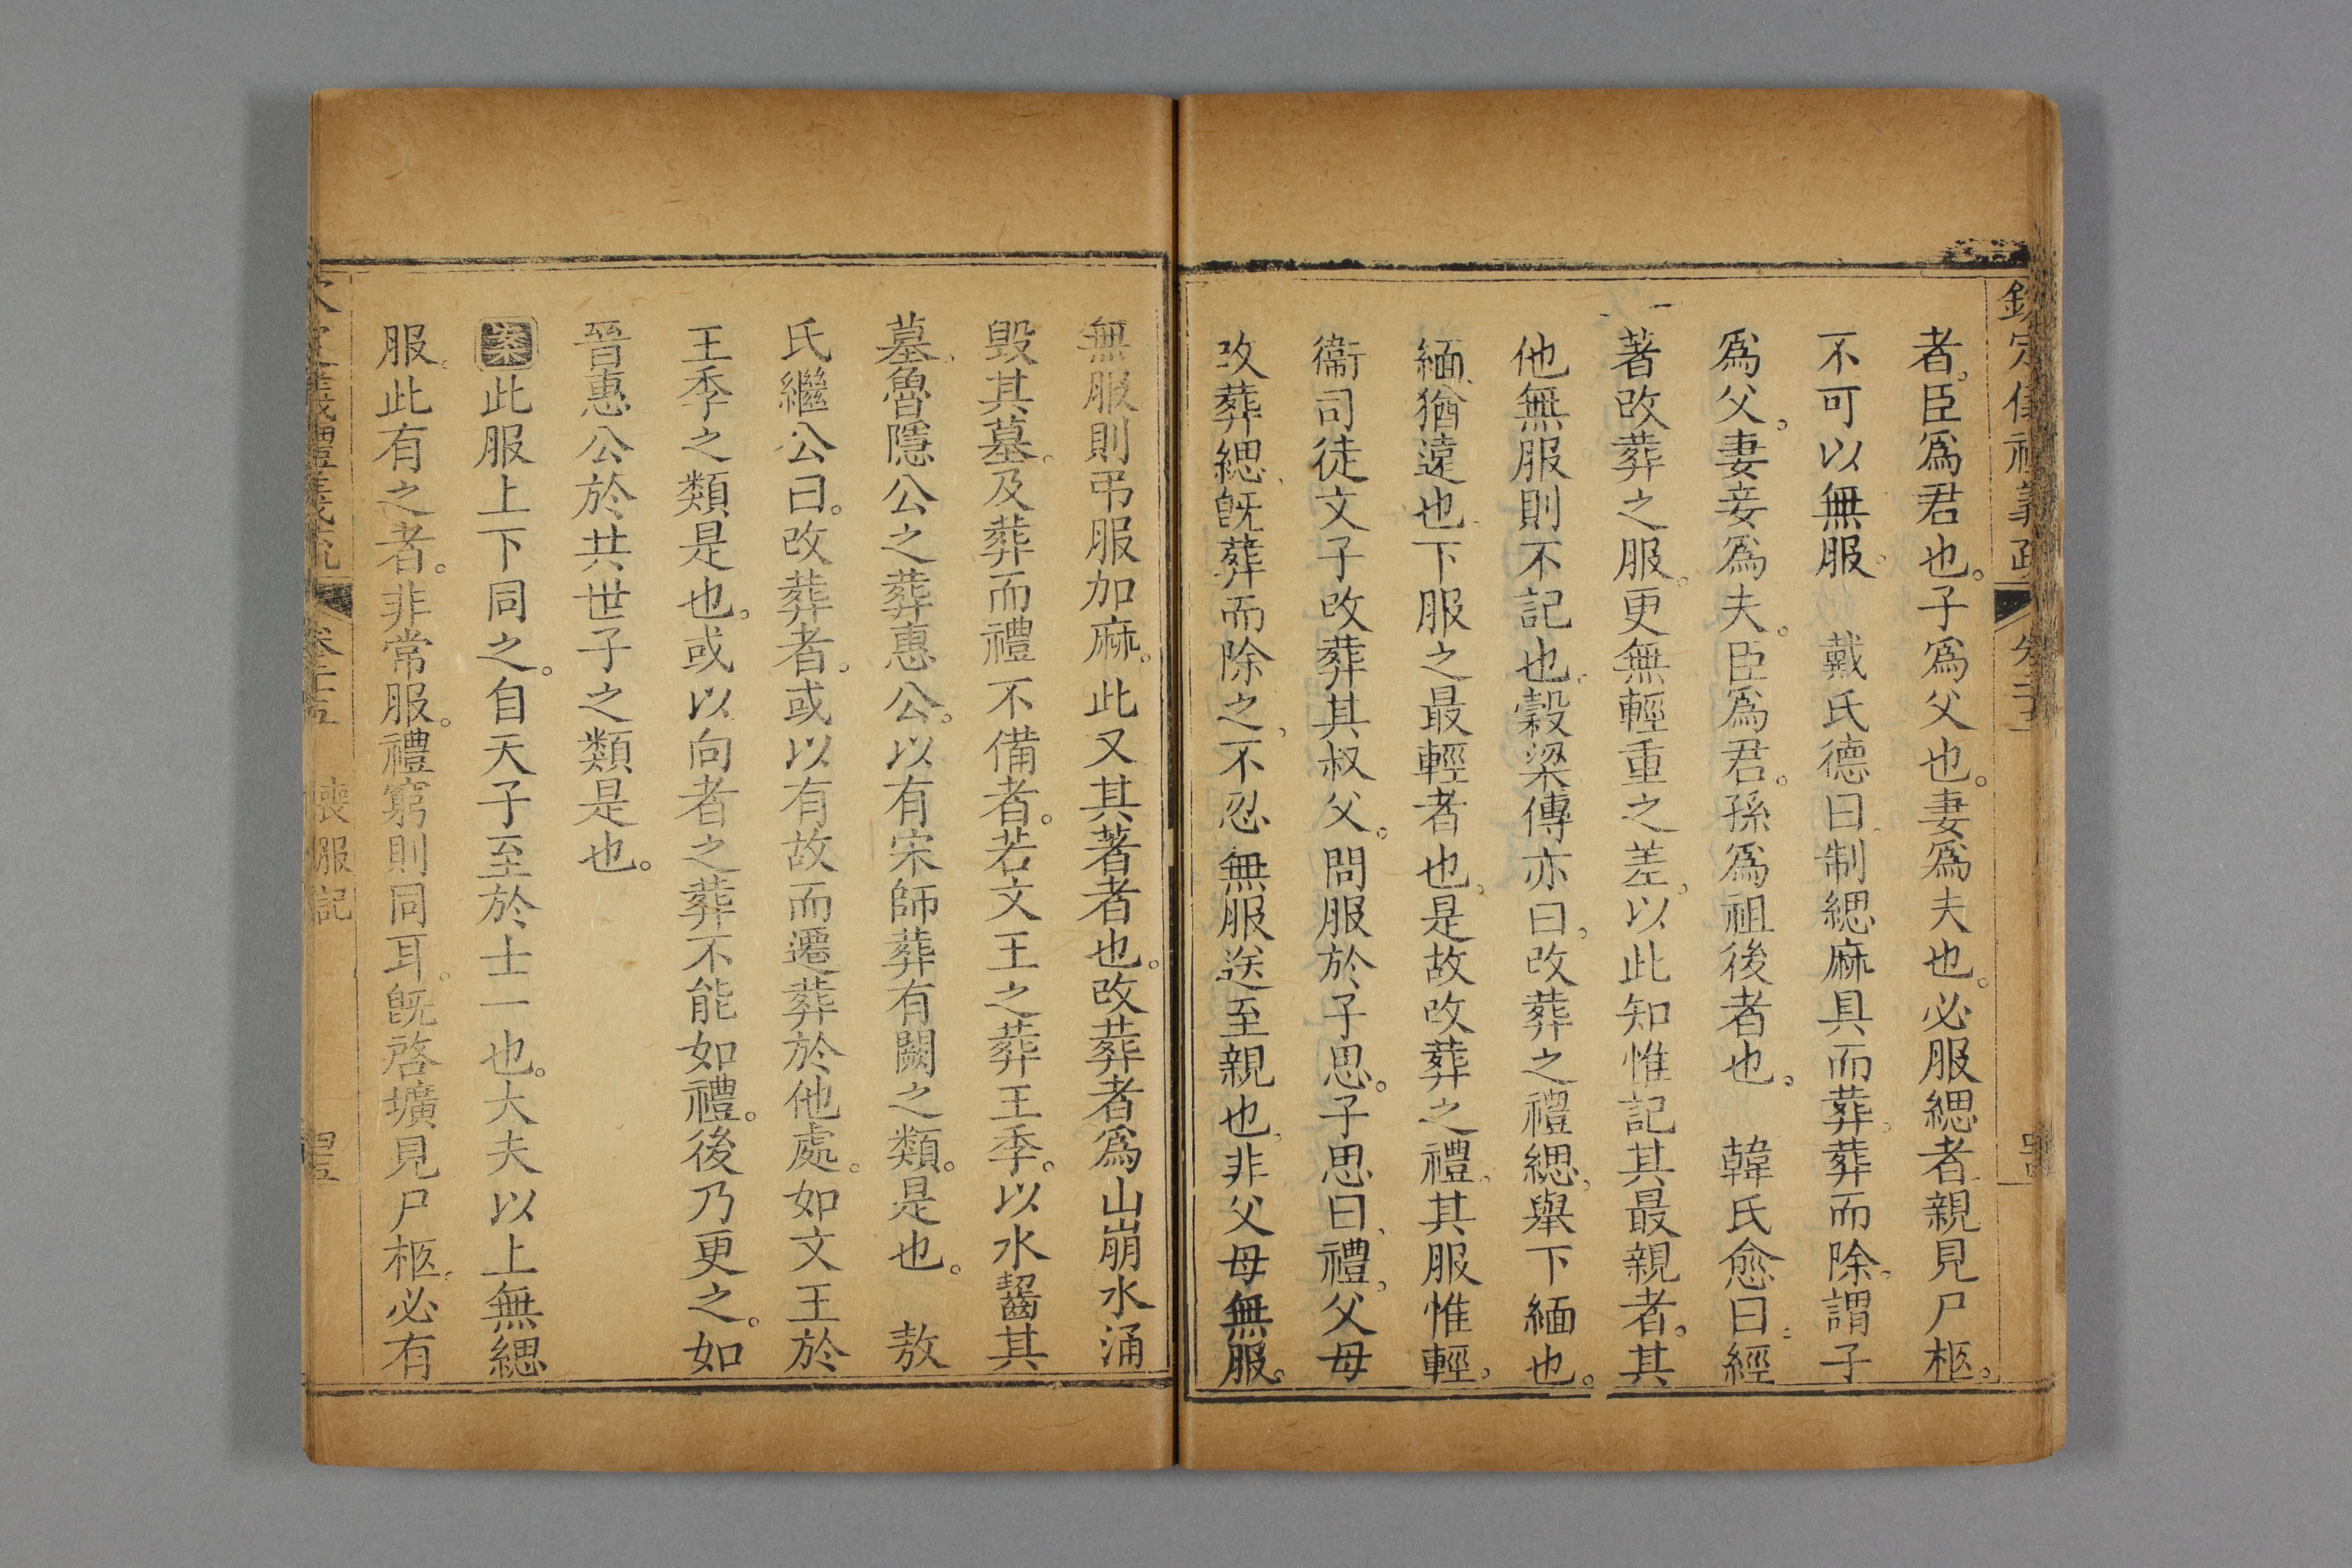 者臣爲君也。子爲父也。妻爲夫也。必服緦者親見尸柩。
不可以無服。 戴氏德曰制緦麻具而葬。葬而除。謂子
爲父。妻妾爲夫。臣爲君。孫爲祖後者也。 韓氏愈曰經
著改葬之服。更無輕重之差。以此知惟記其最親者。其
他無服則不記也。穀梁傳亦曰。改葬之禮緦。舉下緬也。
緬猶遠也。下服之最輕者也。是故改葬之禮。其服惟輕。
衞司徒文子改葬其叔父。問服於子思。子思曰禮。父母
改葬緦。旣葬而除之。不忍無服送至親也。非父母無服。
無服則弔服加麻。此又其著者也。改葬者爲山崩水涌
毀其墓。及葬而禮不備者。若文王之葬王季。以水齧其
墓。魯隱公之葬惠公。以有宋師葬有闕之類。是也。 敖
氏繼公曰。改葬者。或以有故而遷葬於他處。如文王於
王季之類是也。或以向者之葬不能如禮。後乃更之。如
晉惠公於共世子之類是也。
案此服上下同之。自天子至於士一也。大夫以上無緦
服。此有之者。非常服。禮窮則同耳。旣啓壙見尸柩。必有
喪服記